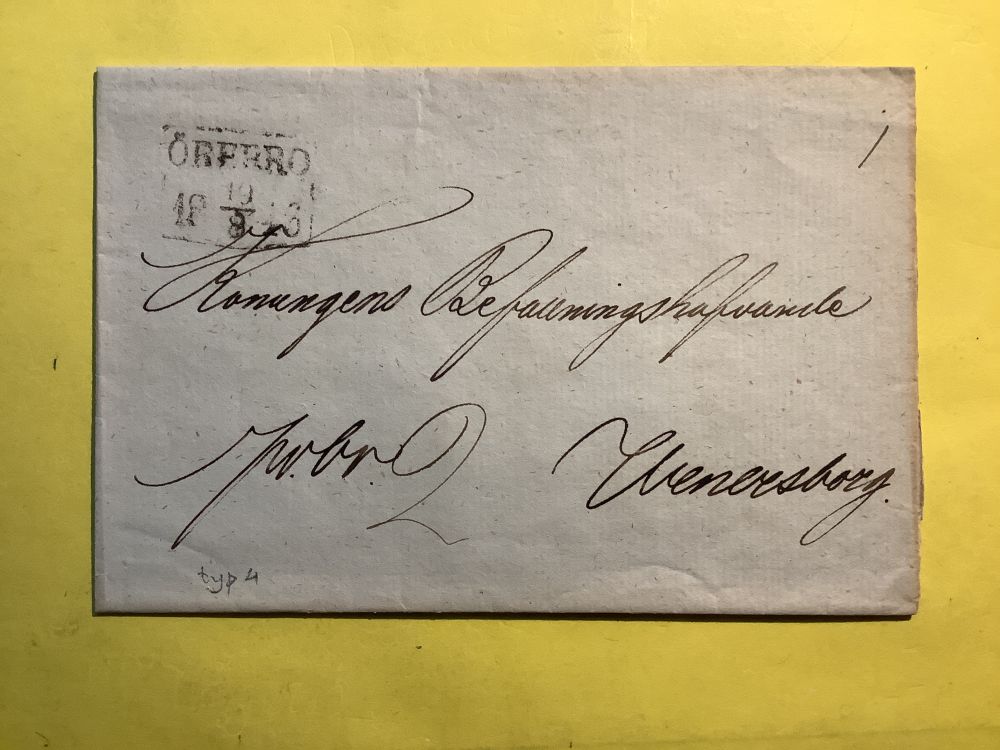 ÖREBRO
19
8
Konungens Befallningshafvande
pr.br. 2 Wenersborg.
typ 4